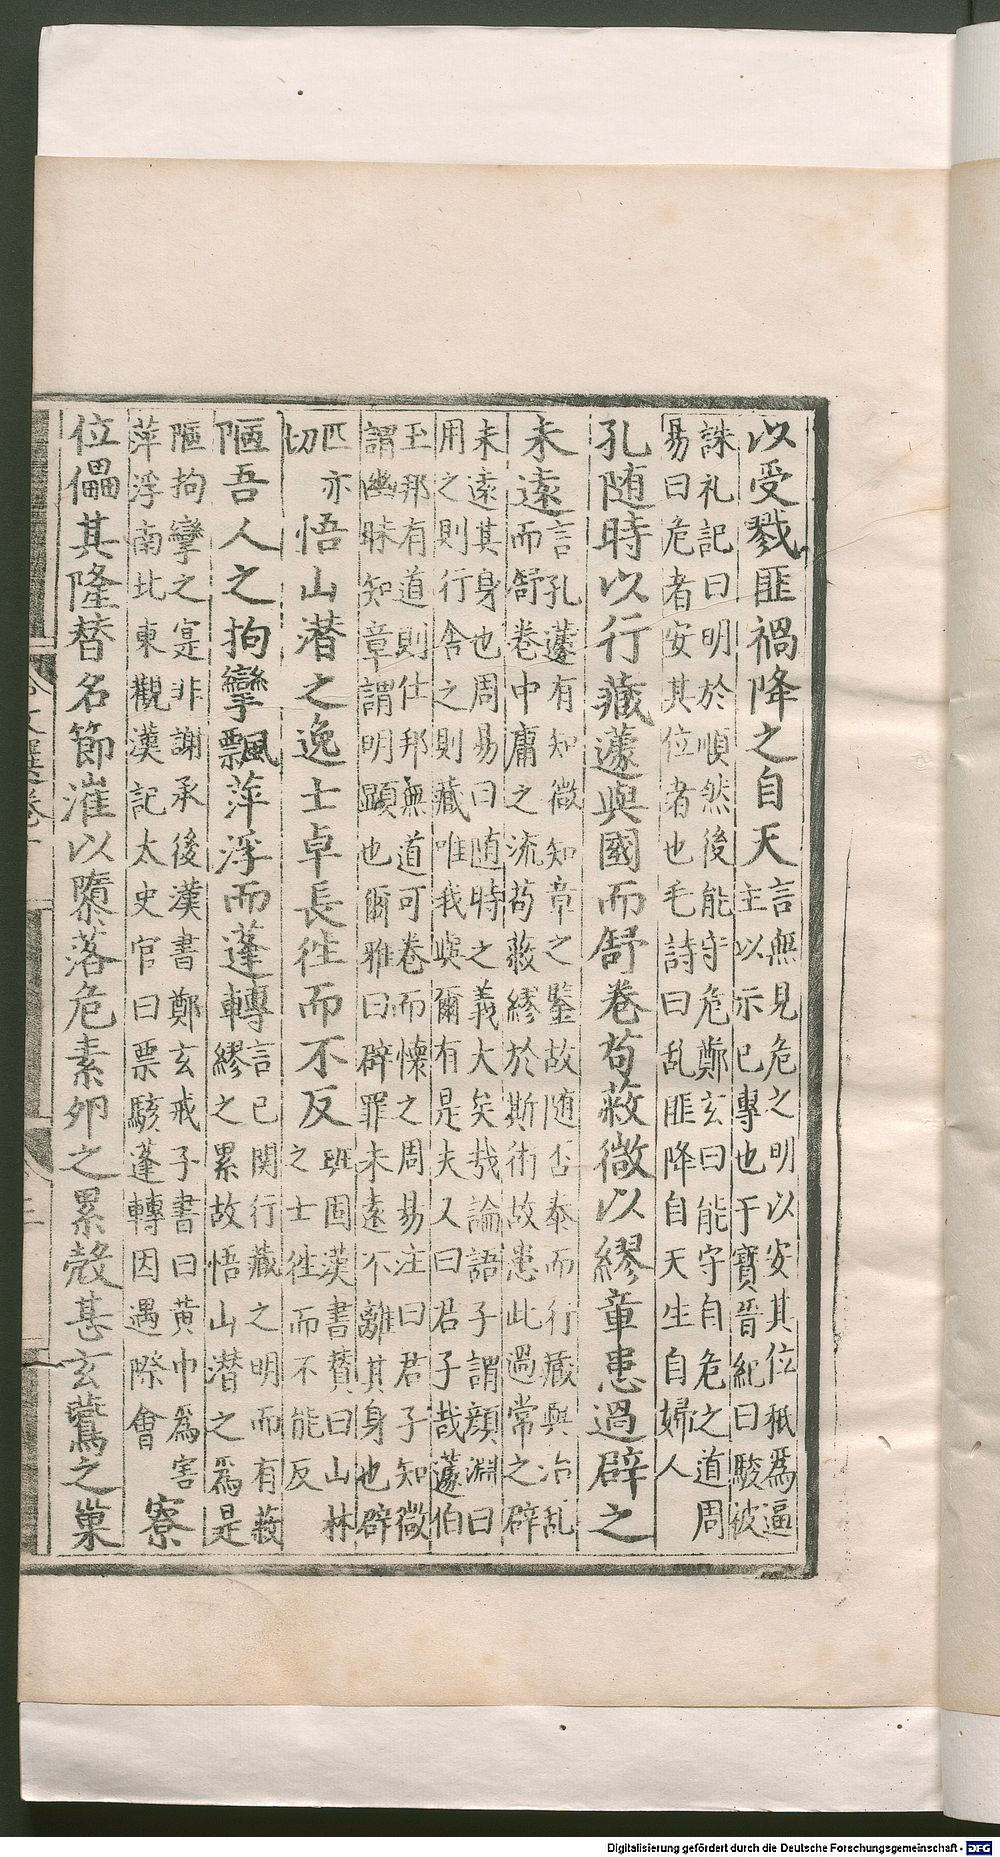 以受戮匪禍降之自天言無見危之明以安其位秖為逼
主以示已專也于寶晉紀曰駿被
誅礼記曰明於順然後能守危鄭玄曰能守自危之道周
易曰危者安其位者也毛詩曰乱匪降自天生自婦人
孔随時以行藏蘧與國而舒卷苟蔽微以繆章患過辟之
未遠言孔蘧有知微知章之鑒故随否泰而行藏與治乱
而舒卷中庸之流苟蔽繆於斯術故患此過常之辟
未遠其身也周易曰随時之義大矣哉論語子謂顔淵曰
用之則行舍之則藏唯我與爾有是夫又曰君子哉蘧伯
玉邦有道則仕邦無道可卷而懷之周易注曰君子知微
謂幽昧知章謂明顯也爾雅曰辟罪未遠不離其身也辟
匹亦
切
悟山潜之逸士卓長徃而不反班固漢書賛曰山林
之士徃而不能反
陋吾人之拘攣飄萍浮而蓬轉言已関行藏之明而有蔽
繆之累故悟山潜之為是
陋拘攣之寔非謝承後漢書鄭玄戒子書曰黄巾為害
萍浮南北東觀漢記太史官曰票駭蓬轉因遇際會
寮
位儡其隆替名節漼以隳落危素卵之累殼甚玄鷰之巢
文選卷十
Digitalisierung gefördert durch die Deutsche Forschungsgemeinschaft - DFG